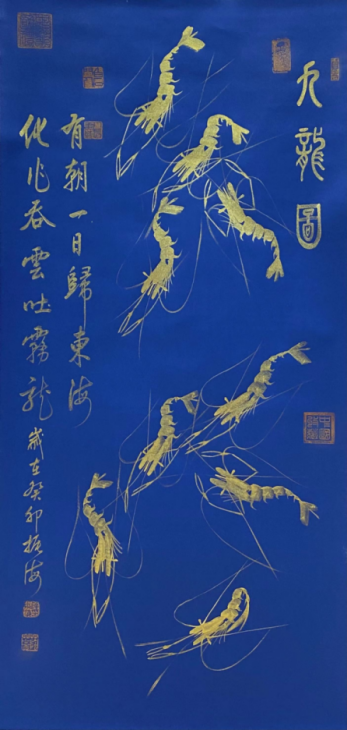 九龍圖
有朝一日歸東海
化作吞雲吐霧龍
歲在癸卯振海